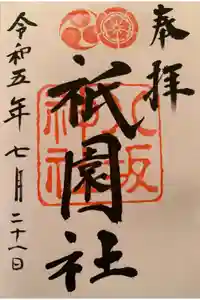 奉拝
祇園社
八坂
神社
令和五年七月二十一日